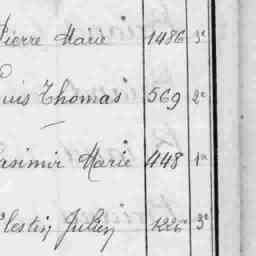 Pierre Marie 1486 3e
Louis Thomas 569 2e
Casimir Marie 448 1a
Célestin Julien 1226 3e